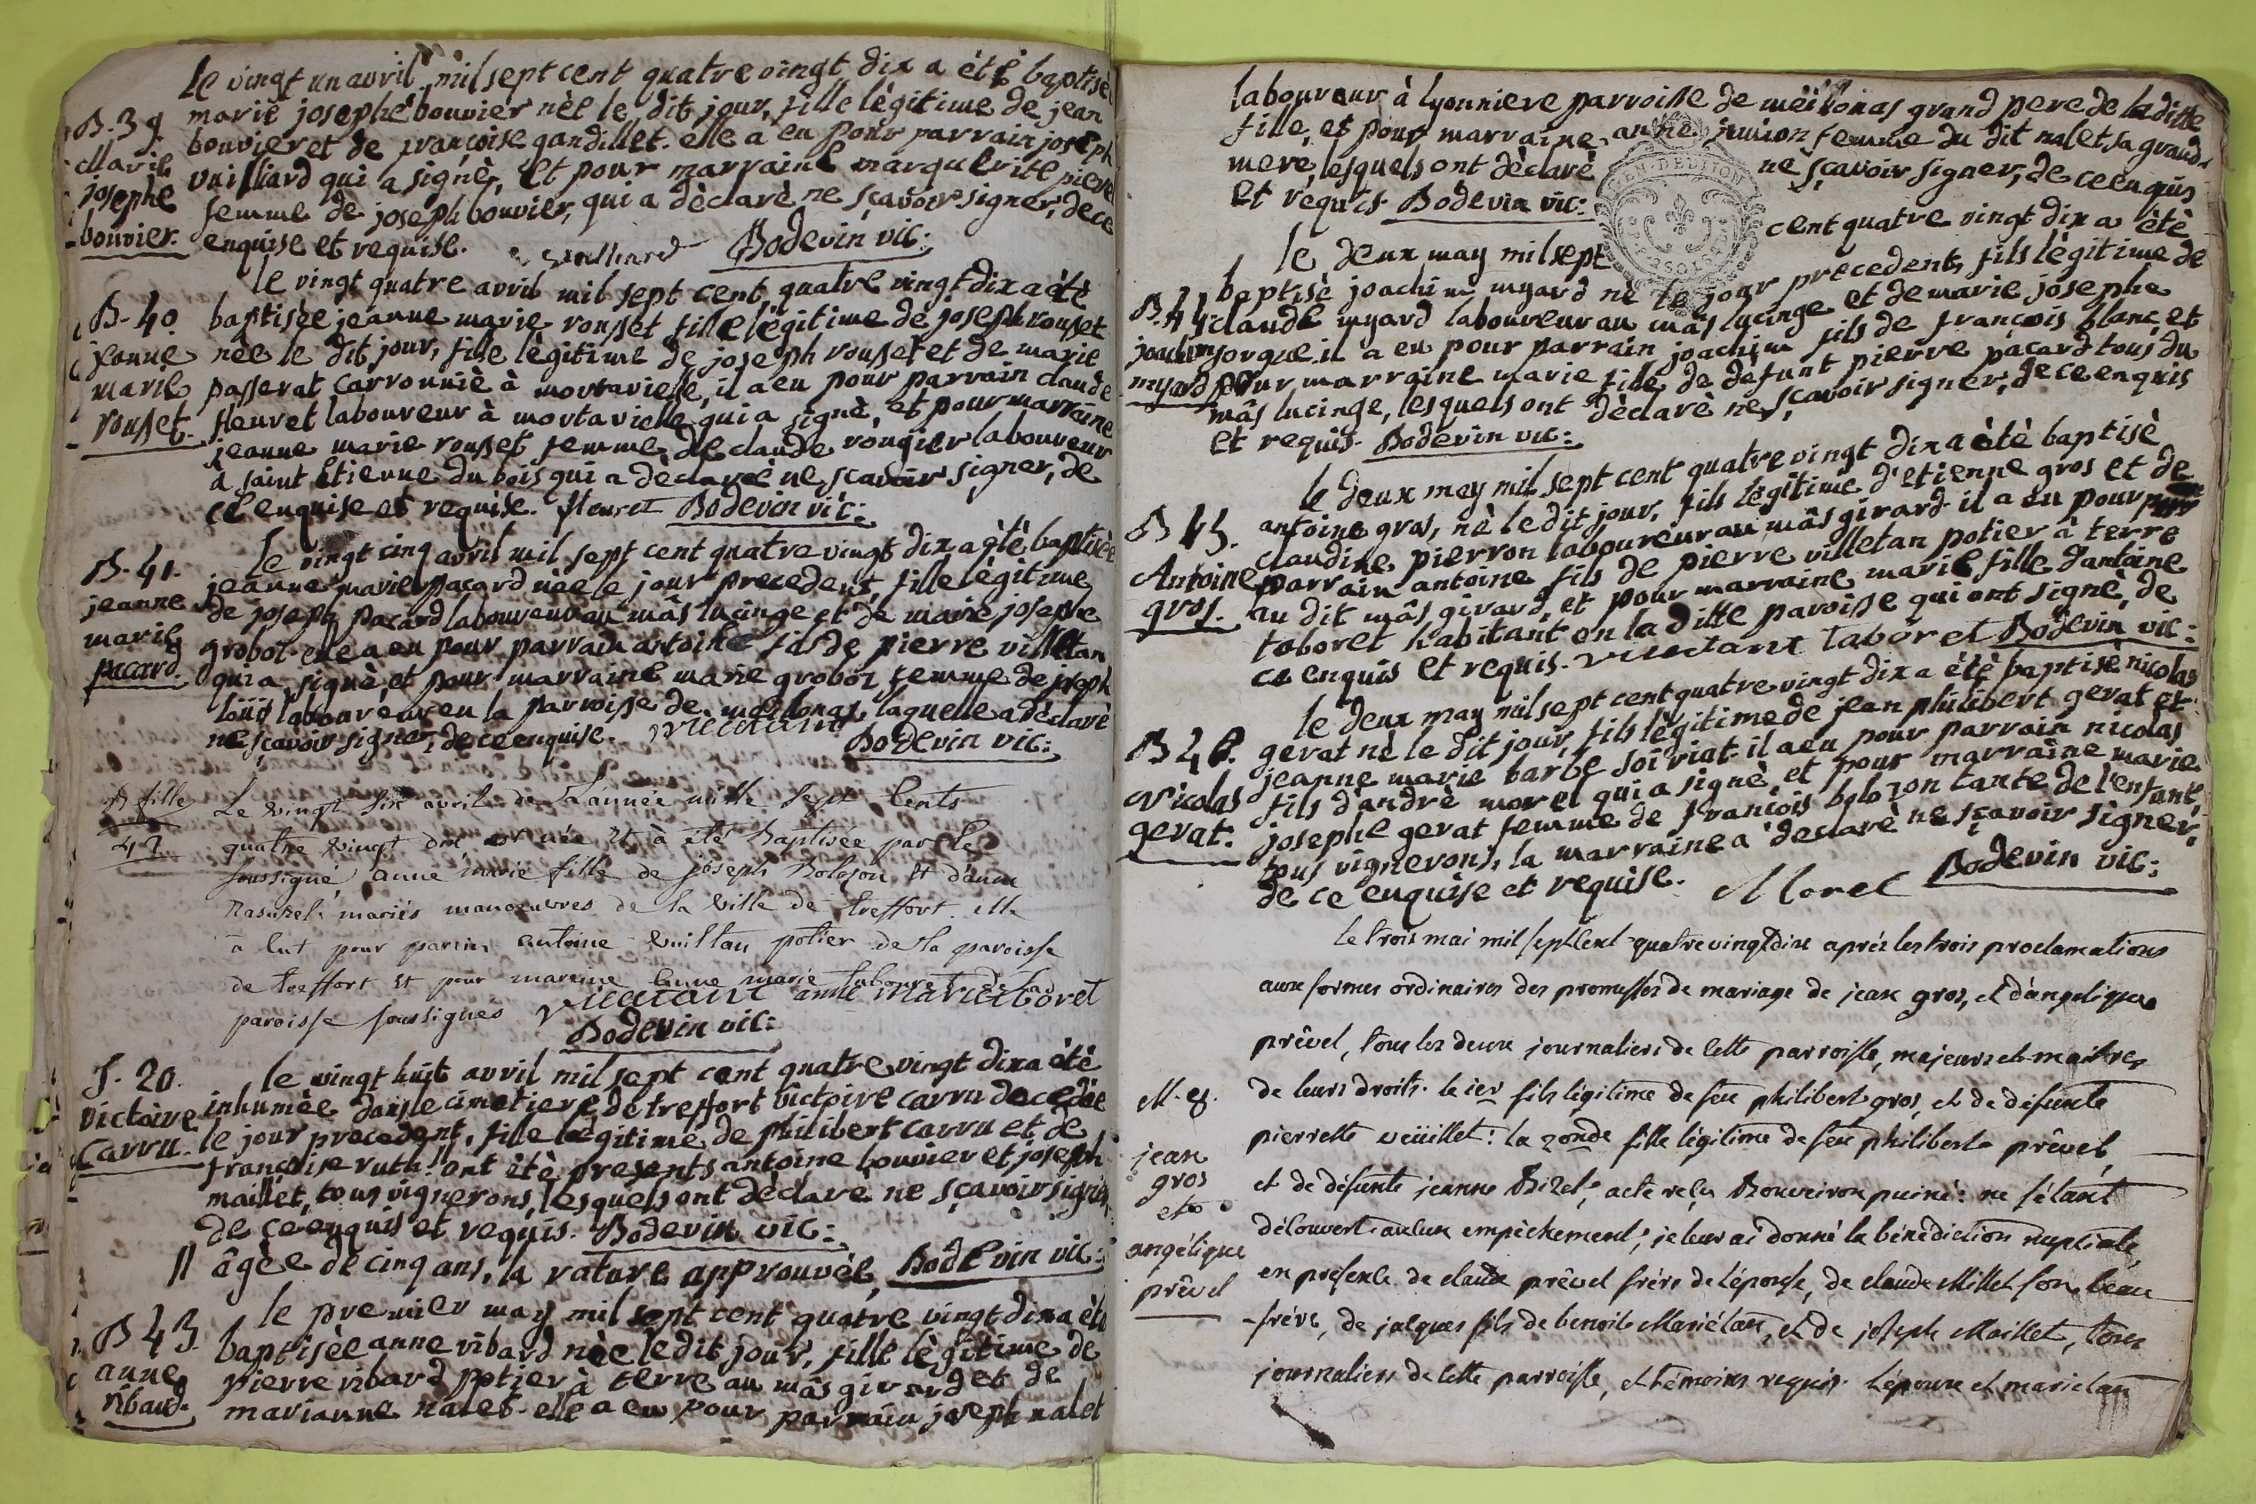 Le vingt un avril mil sept cent quatre vingt dix a èté baptisèe
B. 39.
Marie
josephe
bouvier.
marie josephe bouvier nèe le dit jour, fille lègitime de jean
bouvier et de françoise gandillet. elle a eu pour parrain joseph
vuilliard qui a signè, et pour marraine marguerite pierre
femme de joseph bouvier, qui a dèclarè ne sçavoir signer, de ce
enquise et requise. Bodevin vic:
le vingt quatre avril mil sept cent quatre vingt dix a ètè
B. 40.
jeanne
marie
rousset.
baptisèe jeanne marie rousset fille lègitime de joseph rousset
nèe le dit jour, fille lègitime de joseph rousset et de marie
passerat carronniè à mortavielle, il a eu pour parrain claude
fleuret laboureur à mortavielle qui a signè, et pour marraine
jeanne marie rousset femme de claude rougier laboureur
à saint Etienne du bois qui a dèclarè ne sçavoir signer, de
ce enquise et requise. fleuret Bodevin vic:
le vingt cinq avril mil sept cent quatre vingt dix a ètè baptisèe
B. 41.
jeanne
marie
pacard.
jeanne marie pacard nèe le jour precedent, fille lègitime
de joseph pacard laboureur au mâs lucinge et de marie josephe
groboz. elle a eu pour parrain antoine fils de pierre villetan
qui a signè, et pour marraine marie groboz femme de joseph
loüis laboureur en la parroisse de meillonas, laquelle a dèclarè
ne sçavoir signer, de ce enquise.
Bodevin vic:
B fille
42
Le vingt six avril de l'année mille sept cents
quatre vingt dix est née et à été baptisée par le
soussigné, anne marie fille de joseph Bolozon et d'anne
mariés manoeuvres de la ville de treffort. elle
a eut pour parrin antoine villtan potier de la paroisse
de treffort et pour marraine anne marie tabouret de la d
paroisse soussignés villetant anne marie taboret
Bodevin vic:
S. 20.
victoire
carru.
le vingt huit avril mil sept cent quatre vingt dix a ètè
inhumèe dans le cimetiere de treffort victoire carru decedèe
le jour precedent, fille lègitime de philibert carru et de
françoise ruta. ont ètè presents antoine bouvier et joseph
maillet, tous vignerons, lesquels ont dèclarè ne sçavoir signer,
de ce enquis et requis. Bodevin vic:
// âgèe de cinq ans, la rature approuvèe, Bodevin vic:
B 43.
anne
ribard.
le premier may mil sept cent quatre vingt dix a ètè
baptisèe anne ribard nèe le dit jour, fille lègitime de
pierre ribard potier à terre au mâs girard et de
marianne nalet. elle a eu pour parrain joseph nalet
laboureur à lyonniere parroisse de meillonas grand pere de la ditte
fille, et pour marraine anne femme du dit nalet sa grand
mere, lesquels ont dèclarè ne sçavoir signer, de ce enquis
et requis. Bodevin vic:
GEN. DE DIJON
le deux may mil sept cent quatre vingt dix a ètè
B. 44.
joachim
myard
baptisè joachim myard nè le jour precedent, fils lègitime de
claude myard laboureur au mâs lucinge et de marie josephe
jorgue. il a eu pour parrain joachim fils de francois blanc, et
pour marraine marie fille de defunt pierre pacard tous du
mâs lucinge, lesquels ont dèclarè ne sçavoir signer, de ce enquis
et requis. Bodevin vic:
le deux may mil sept cent quatre vingt dix a ètè baptisè
B 45.
Antoine
gros.
antoine gros, nè le dit jour, fils lègitime d'etienne gros et de
claudine pierron laboureur au mâs girard. il a eu pour
parrain antoine fils de pierre villetan potier à terre
au dit mâs girard, et pour marraine marie fille d'antoine
taboret habitant en la ditte paroisse qui ont signè, de
ce enquis et requis. villetant taboret Bodevin vic:
le deux may mil sept cent quatre vingt dix a ètè baptisè nicolas
B 46.
Nicolas
gerat.
gerat nè le dit jour, fils lègitime de jean philibert gerat et
jeanne marie barbe soiriat. il a eu pour parrain nicolas
fils d'andrè morel qui a signè, et pour marraine marie
josephe gerat femme de francois bolozon tante de l'enfant,
tous vignerons, la marraine a declarè ne sçavoir signer,
de ce enquise et requise. Morel Bodevin vic:
le trois mai mil sept cent quatre vingt dix aprés les trois proclamations
aux formes ordinaires des promesses de mariage de jean gros, et d'angelique
prêvel, tous les deux journaliers de cette parroisse, majeurs et maitres
M. 8.
jean
gros
et
angélique
prêvel
de leurs droits. le 1er fils légitime de feu philibert gros, et de défunte
pierrette veüillet: la 2onde fille légitime de feu philibert prêvel,
et de défunte jeanne Bizet; acte reçu Bouveiron puiné: ne s'étant
découvert aucun empêchement; je leur ai donné la bénédiction nuptiale,
en presence de claude prêvel frére de l'épouse, de claude Millet son beau
-frére, de jacques fils de benoit Mariétan, et de joseph Maillet, tous
journaliers de cette parroisse, et témoins requis. l'époux et marietan